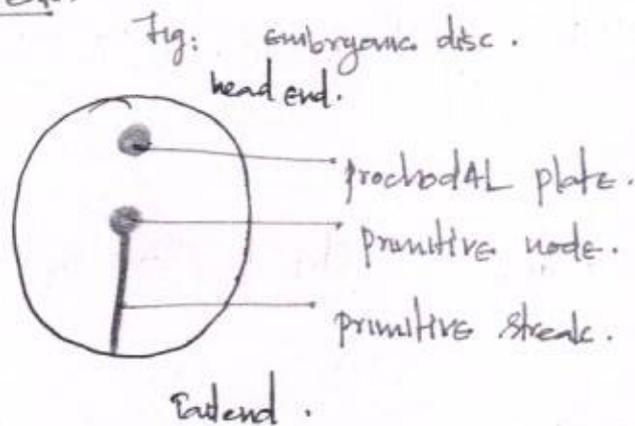 Fig: embryonic disc.
head end.
prochodAL plate.
primitive node.
primitive streak.
Tail end.